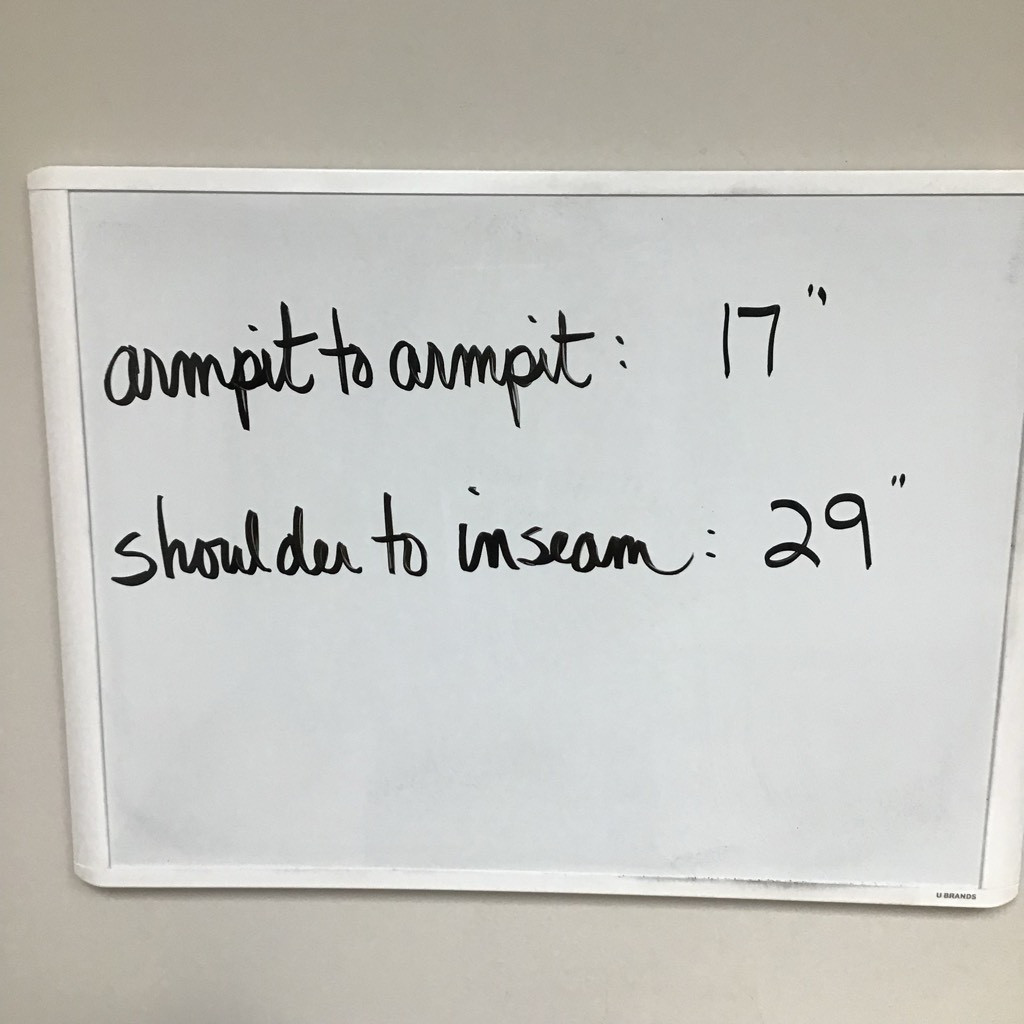 armpit to armpit: 17"
shoulder to inseam: 29"
U BRANDS